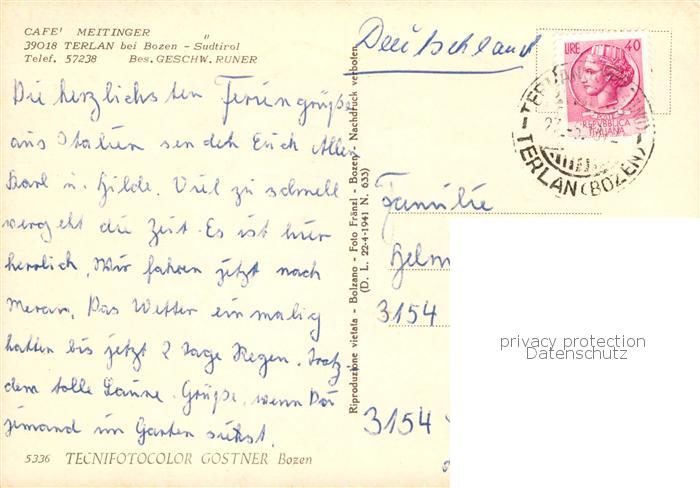 CAFE' MEITINGER "
39018 TERLAN bei Bozen - Südtirol
Telef. 57238 Bes. GESCHW. RUNER
Die herzlichsten Feriengrüße
aus Italien sendet Euch Allen
Karl u. Hilde. Viel zu schnell
vergeht die Zeit. Es ist hier
herrlich, Wir fahren jetzt nach
Meran. Das Wetter einmalig
hatten bis jetzt 2 Tage Regen. Trotz-
dem tolle Laune. Grüße, wenn Du
jemand im Garten siehst.
5336 TECNIFOTOCOLOR GOSTNER Bozen
Riproduzione vietata - Bolzano - Foto Fränzl - Bozen - Nachdruck verboten
(D. L. 22-4-1941 N. 633)
Deutschland
LIRE 40
REPVBBLICA
ITALIANA
TERLAN (BOZEN)
Familie
Helm
3154
3154
privacy protection
Datenschutz